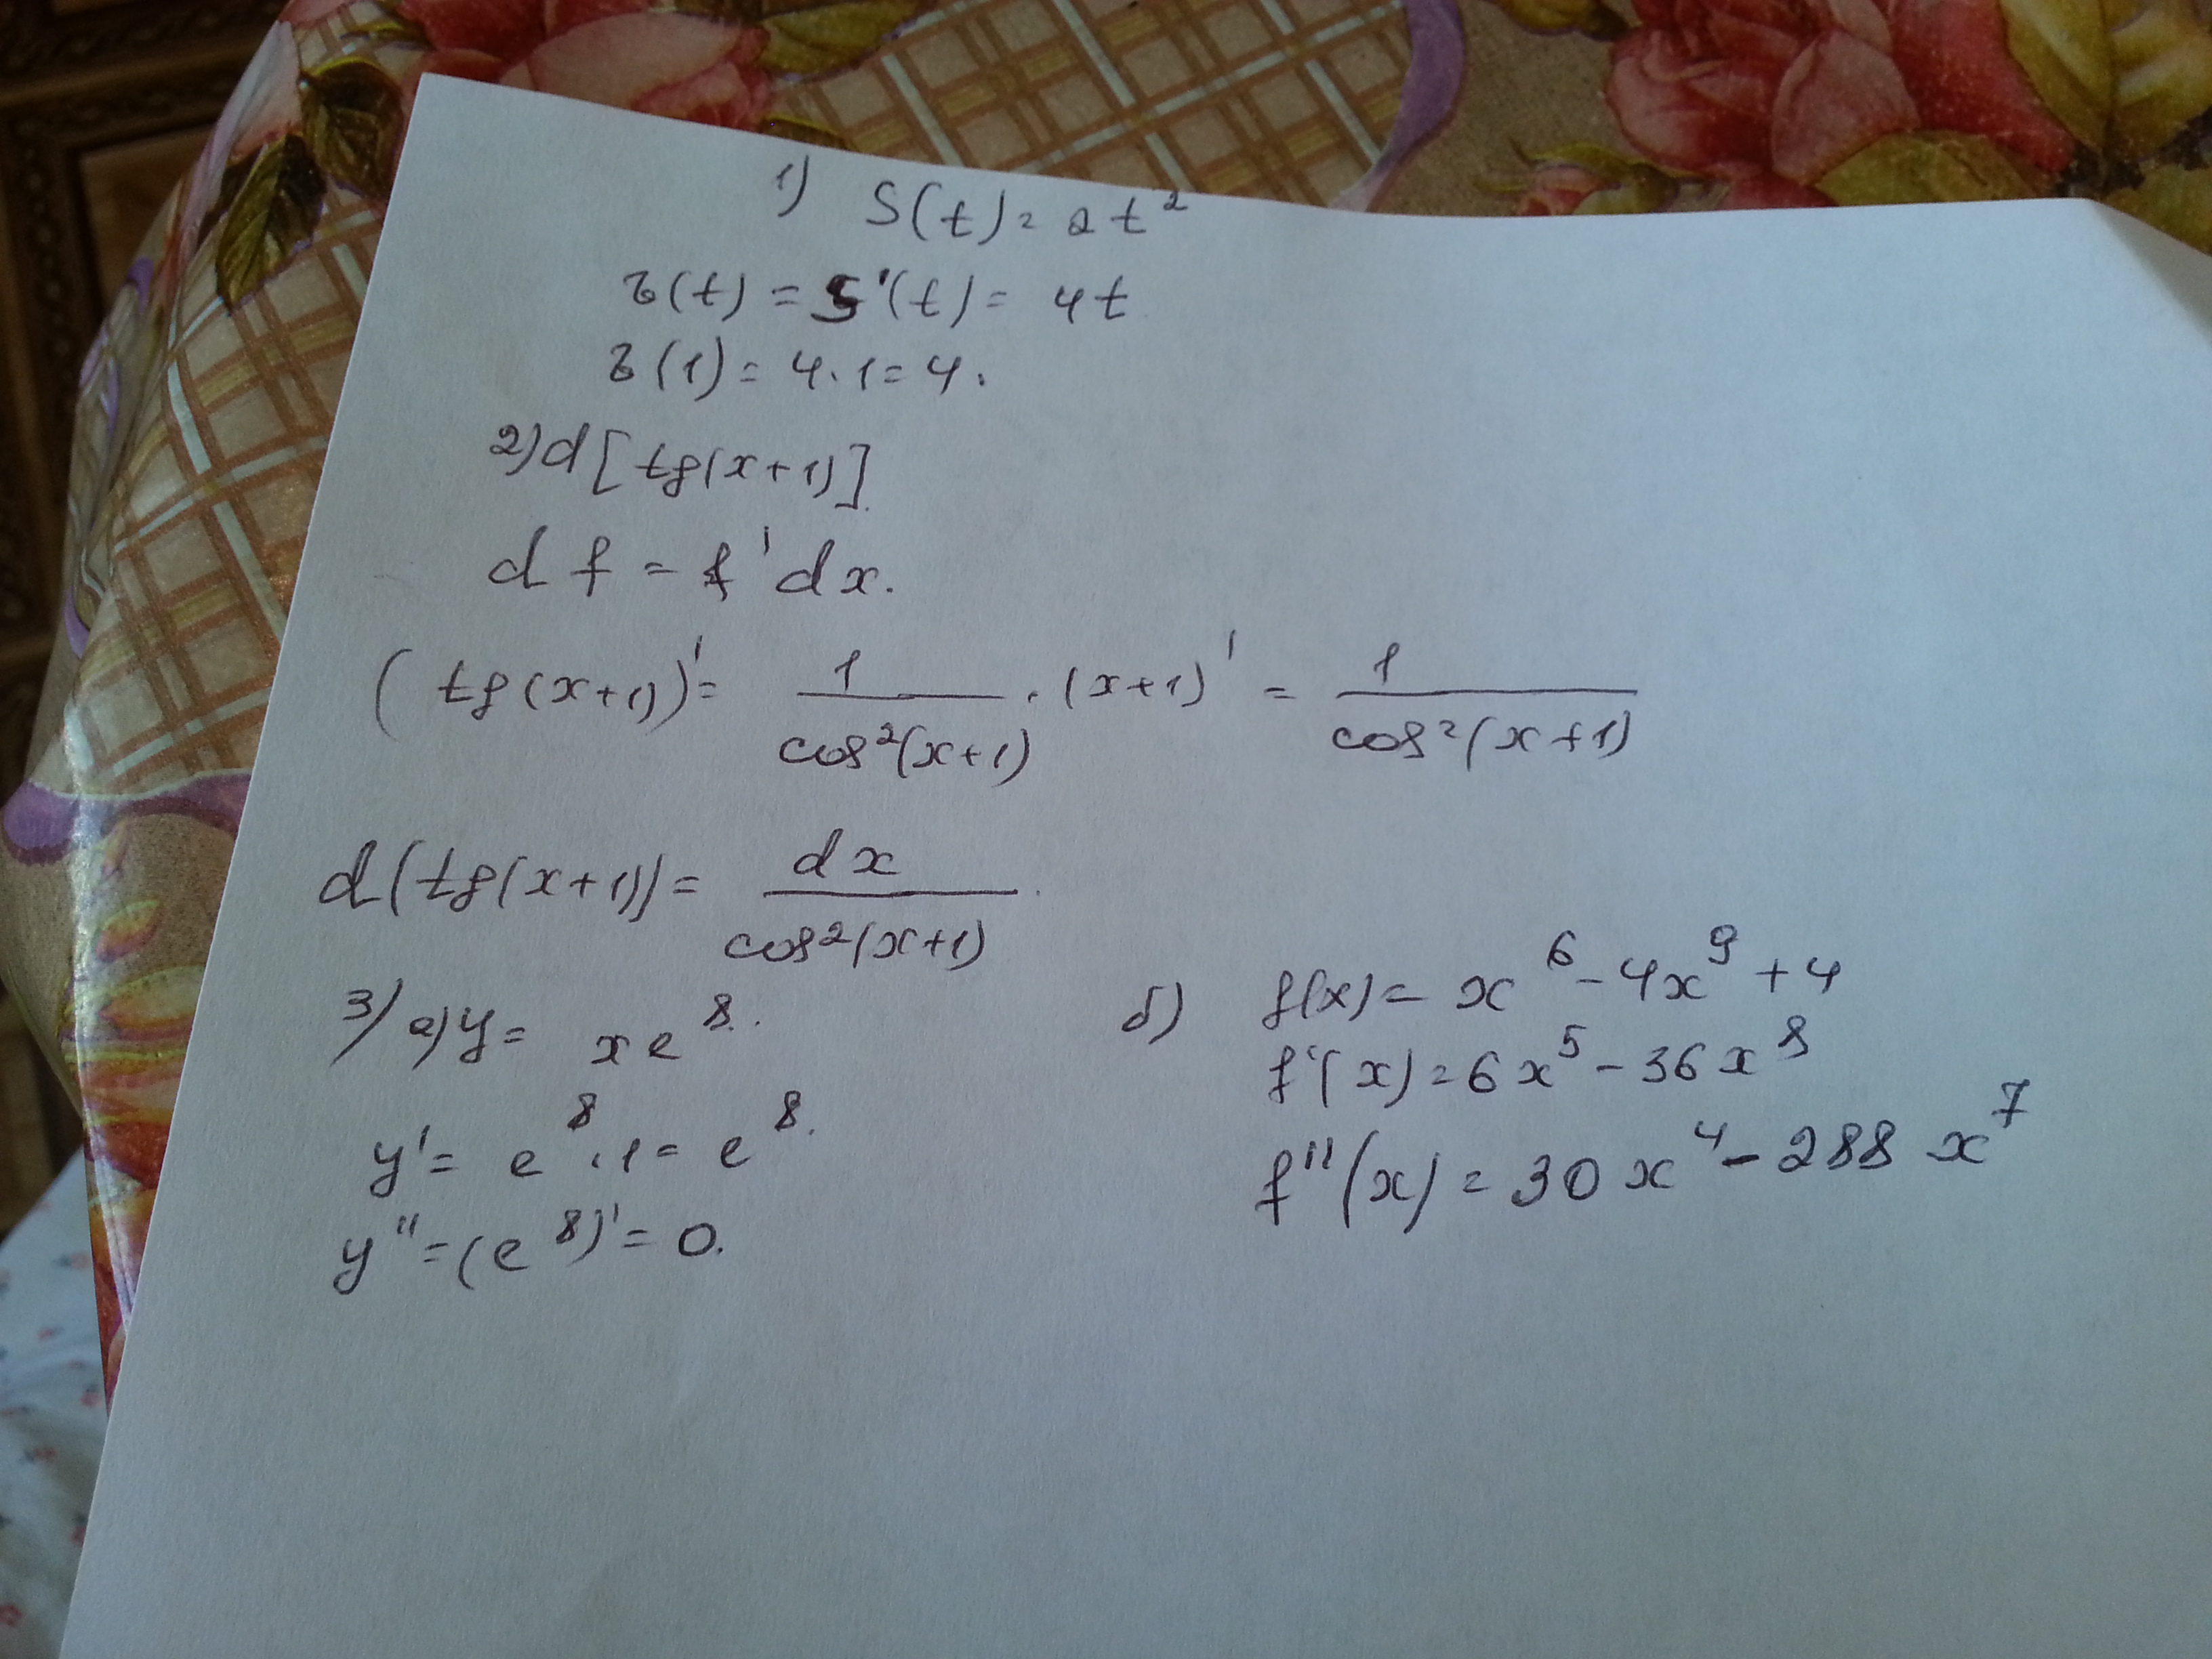 1) S(t) = 2t²
v(t) = S'(t) = 4t
v(1) = 4·1 = 4.
2) d[tg(x+1)]
df = f'dx.
(tg(x+1))' = 1/cos²(x+1) · (x+1)' = 1/cos²(x+1)
d(tg(x+1)) = dx/cos²(x+1)
3) a) y = xe⁸.
y' = e⁸·1 = e⁸.
y'' = (e⁸)' = 0.
б) f(x) = x⁶ - 4x⁹ + 4
f'(x) = 6x⁵ - 36x⁸
f''(x) = 30x⁴ - 288x⁷